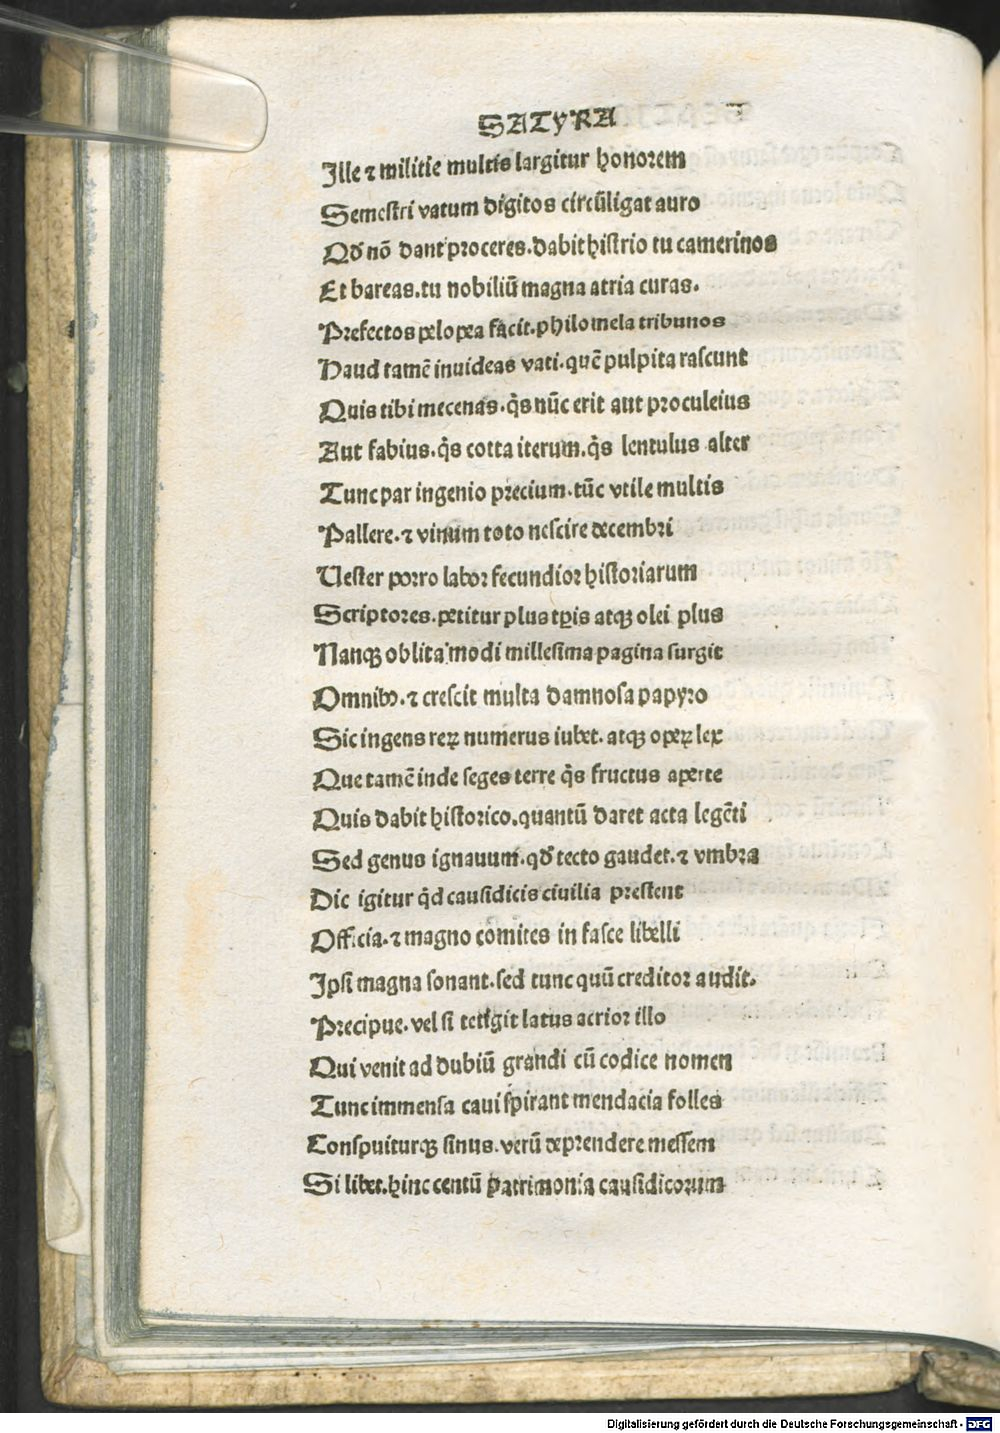 SATYRA
Ille ⁊ militie multis largitur honorem
Semestri vatum digitos circũligat auro
Qđ nõ dant proceres.dabit histrio tu camerinos
Et bareas.tu nobiliũ magna atria curas.
Prefectos pelopea facit.philomela tribunos
Haud tamẽ inuideas vati.quẽ pulpita rascunt
Quis tibi mecenas.q̃s nũc erit aut proculeius
Aut fabius.q̃s cotta iterum.q̃s lentulus alter
Tunc par ingenio precium.tũc vtile multis
Pallere.⁊ vinum toto nescire decembri
Uester porro labor fecundior historiarum
Scriptores.petitur plus tp̱is atqꝫ olei plus
Nanqꝫ oblita modi millesima pagina surgit
Omnibꝰ.⁊ crescit multa damnosa papyro
Sic ingens reꝝ numerus iubet.atqꝫ opeꝝ lex
Que tamẽ inde seges terre q̃s fructus aperte
Quis dabit historico.quantũ daret acta legẽti
Sed genus ignauum.qđ tecto gaudet.⁊ vmbra
Dic igitur q̃d causidicis ciuilia prestent
Officia.⁊ magno comites in fasce libelli
Ipsi magna sonant.sed tunc quũ creditor audit.
Precipue.vel si tetigit latus acrior illo
Qui venit ad dubiũ grandi cũ codice nomen
Tunc immensa caui spirant mendacia folles
Conspuiturqꝫ sinus.verũ deprendere messem
Si libet.hinc centũ patrimonia causidicorum
Digitalisierung gefördert durch die Deutsche Forschungsgemeinschaft - DFG